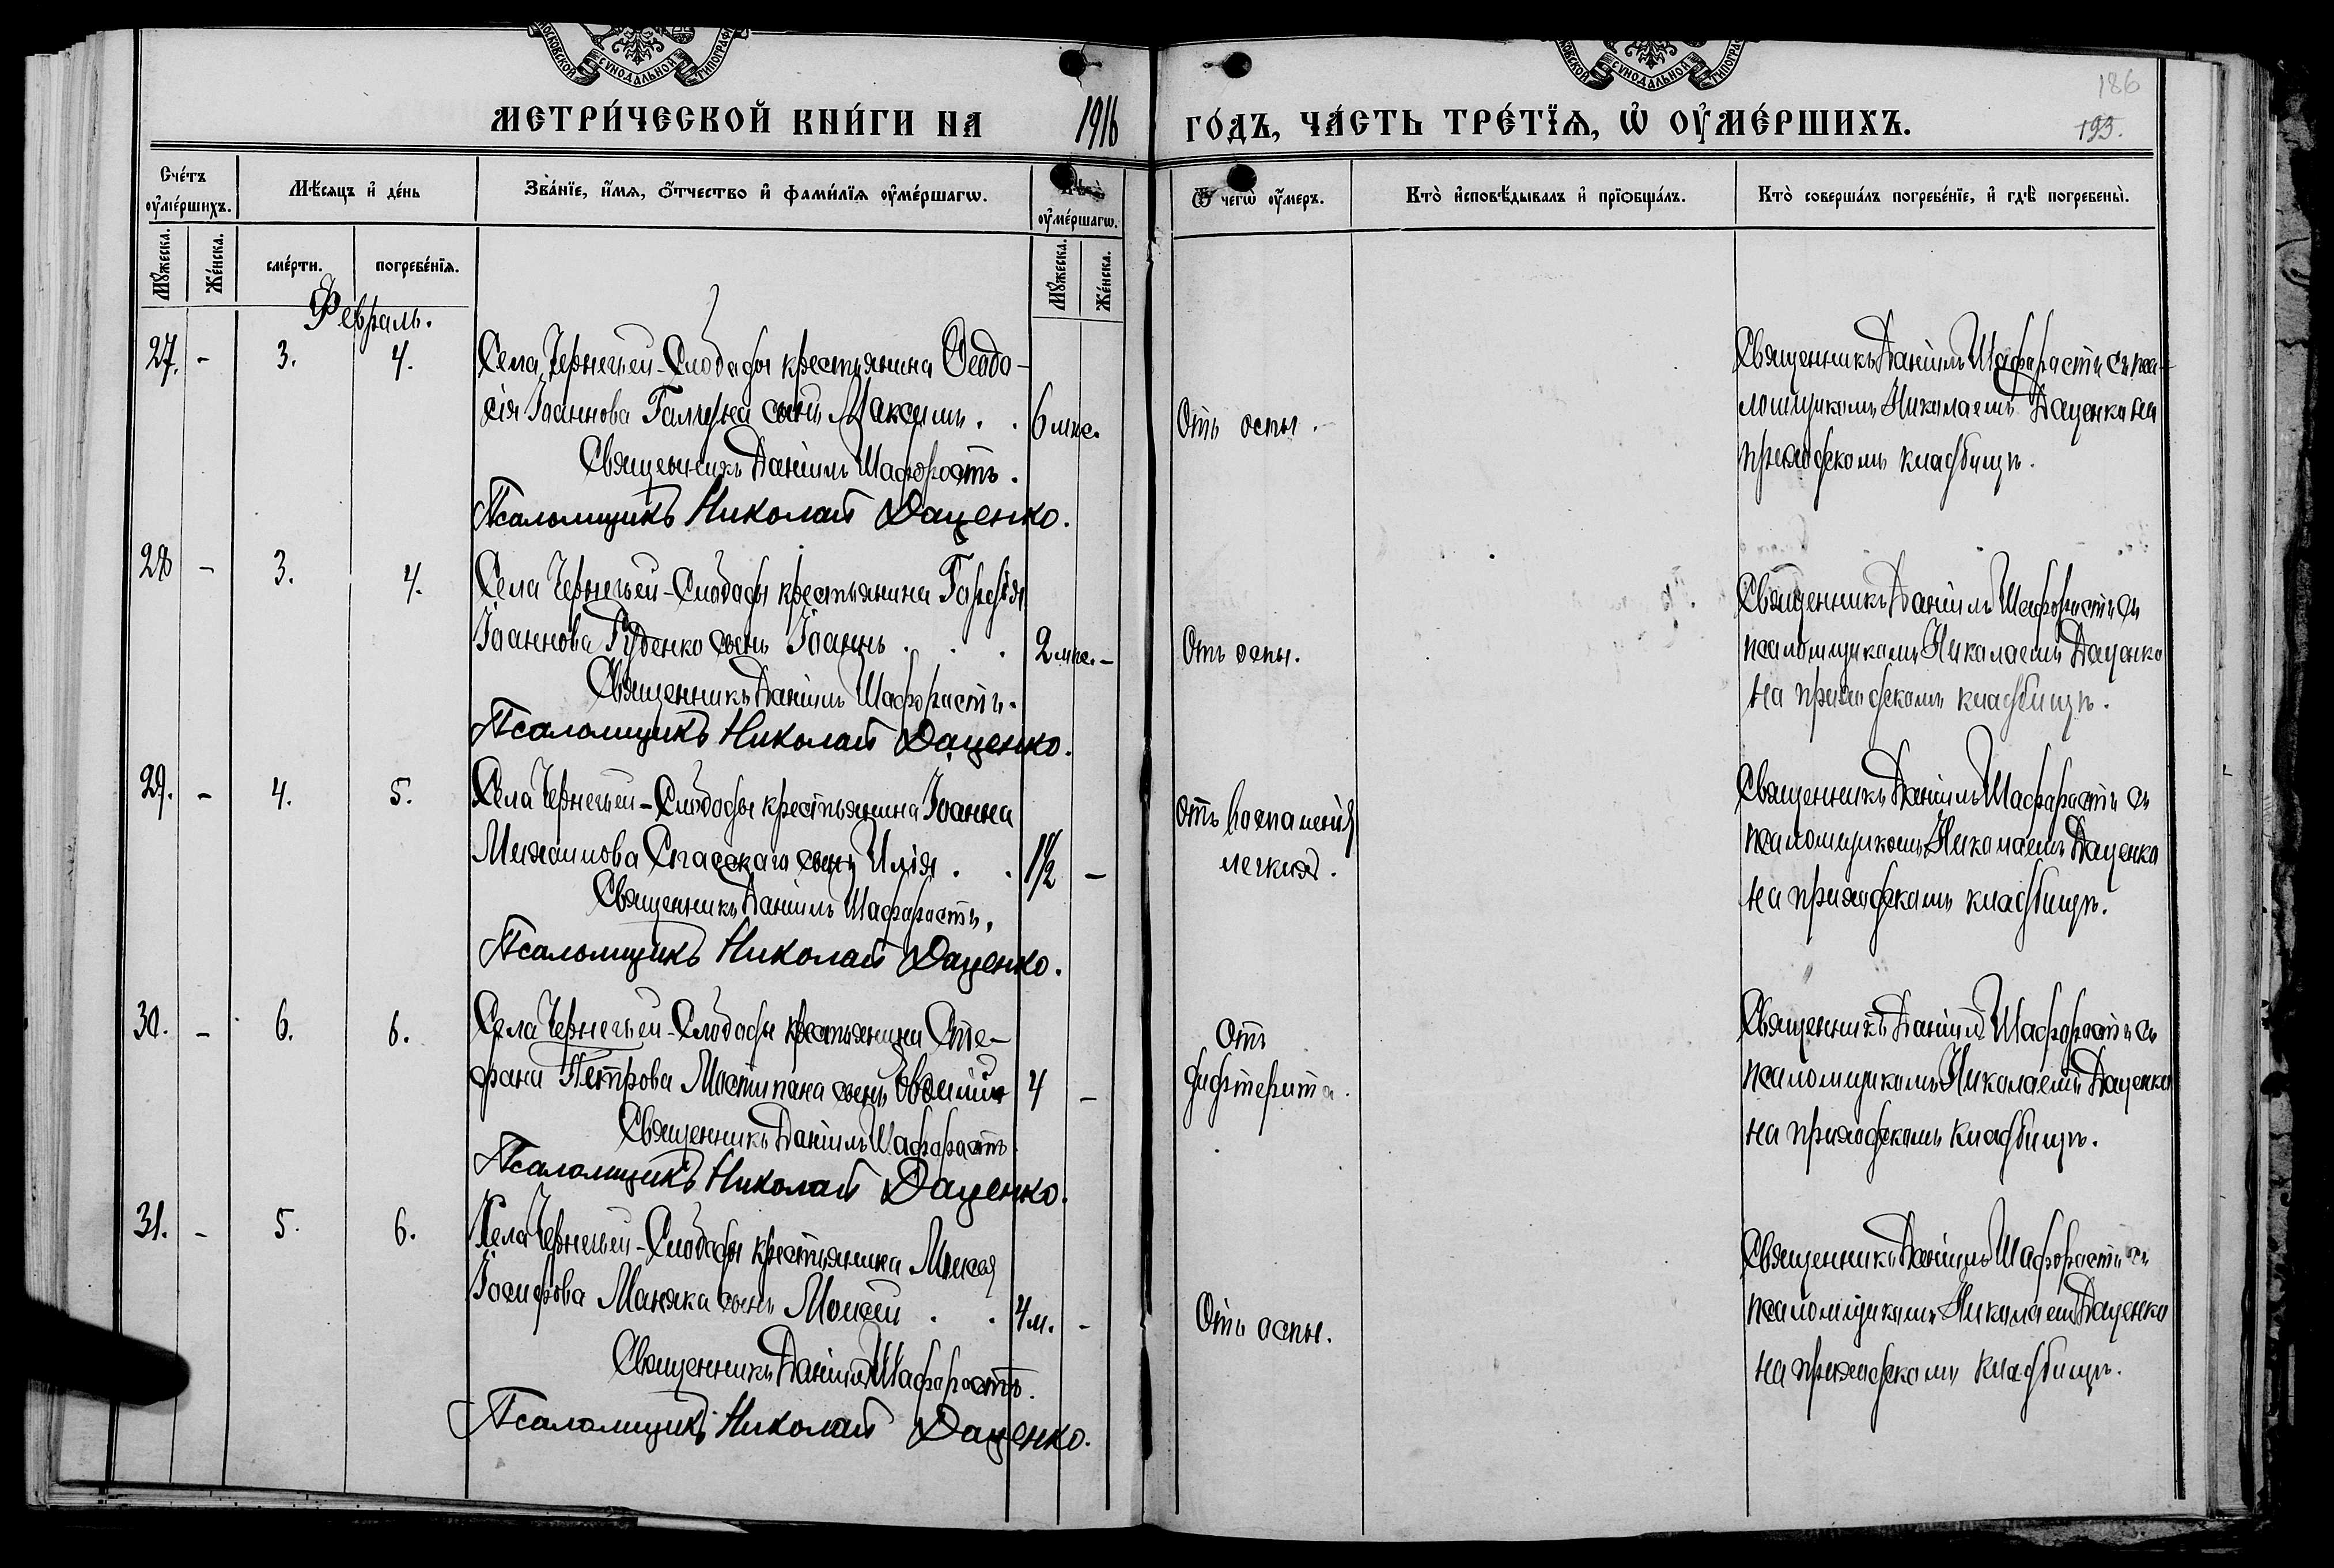 МОСКОВСКОЙ СѴНОДАЛЬНОЙ ТИПОГРАФ
МОСКОВСКОЙ СѴНОДАЛЬНОЙ ТИПОГРАФ
186
193.
МЕТРИ́ЧЕСКОЙ КНИ́ГИ НА 1916 ГО́ДЪ, ЧА́СТЬ ТРЕ́ТЇѦ, Ѡ҆ ОУ҆МЕ́РШИХЪ.
Сче́тъ оу҆ме́ршихъ.
Мѣ́сяцъ и҆ де́нь
Зва́нїе, и҆́мя, ѻ҆́тчество и҆ фами́лїя оу҆ме́ршагѡ.
оу҆ме́ршагѡ.
Ѿ чегѡ̀ оу҆́меръ.
Кто̀ и҆сповѣ́дывалъ и҆ прїѡбща́лъ.
Кто̀ соверша́лъ погребе́нїе, и҆ гдѣ̀ погребены̀.
Мꙋ́жеска.
Же́нска.
сме́рти.
погребе́нїя.
Мꙋ́жеска.
Же́нска.
Февраль.
27. - 3. 4.
Села Чернечьей-Слободы крестьянина Ѳеодо-
сія Іоаннова Галушка сынъ Максимъ . . 6 мѣс.
Священникъ Даніилъ Шафоростъ.
Псаломщикъ Николай Даценко.
Отъ оспы.
Священникъ Даніилъ Шафоростъ съ пса-
ломщикомъ Николаемъ Даценко на
приходскомъ кладбищѣ.
28 - 3. 4.
Села Чернечьей-Слободы крестьянина Гордія
Іоаннова Руденко сынъ Іоаннъ . . . 2 мѣс. -
Священникъ Даніилъ Шафоростъ.
Псаломщикъ Николай Даценко.
Отъ оспы.
Священникъ Даніилъ Шафоростъ съ
псаломщикомъ Николаемъ Даценко
на приходскомъ кладбищѣ.
29. - 4. 5.
Села Чернечьей-Слободы крестьянина Іоанна
Михаилова Спасскаго сынъ Илія . . 1½ -
Священникъ Даніилъ Шафоростъ.
Псаломщикъ Николай Даценко.
Отъ воспаленія
легкихъ.
Священникъ Даніилъ Шафоростъ съ
псаломщикомъ Николаемъ Даценко
на приходскомъ кладбищѣ.
30. - 6. 6.
Села Чернечьей-Слободы крестьянина Сте-
фана Петрова сынъ 4 -
Священникъ Даніилъ Шафоростъ
Псаломщикъ Николай Даценко.
Отъ
дифтерита.
Священникъ Даніилъ Шафоростъ съ
псаломщикомъ Николаемъ Даценко
на приходскомъ кладбищѣ.
31. - 5. 6.
Села Чернечьей-Слободы крестьянина
Іосифова Маняка сынъ Моисей . . 4 м. -
Священникъ Даніилъ Шафоростъ.
Псаломщикъ Николай Даценко.
Отъ оспы.
Священникъ Даніилъ Шафоростъ съ
псаломщикомъ Николаемъ Даценко
на приходскомъ кладбищѣ.